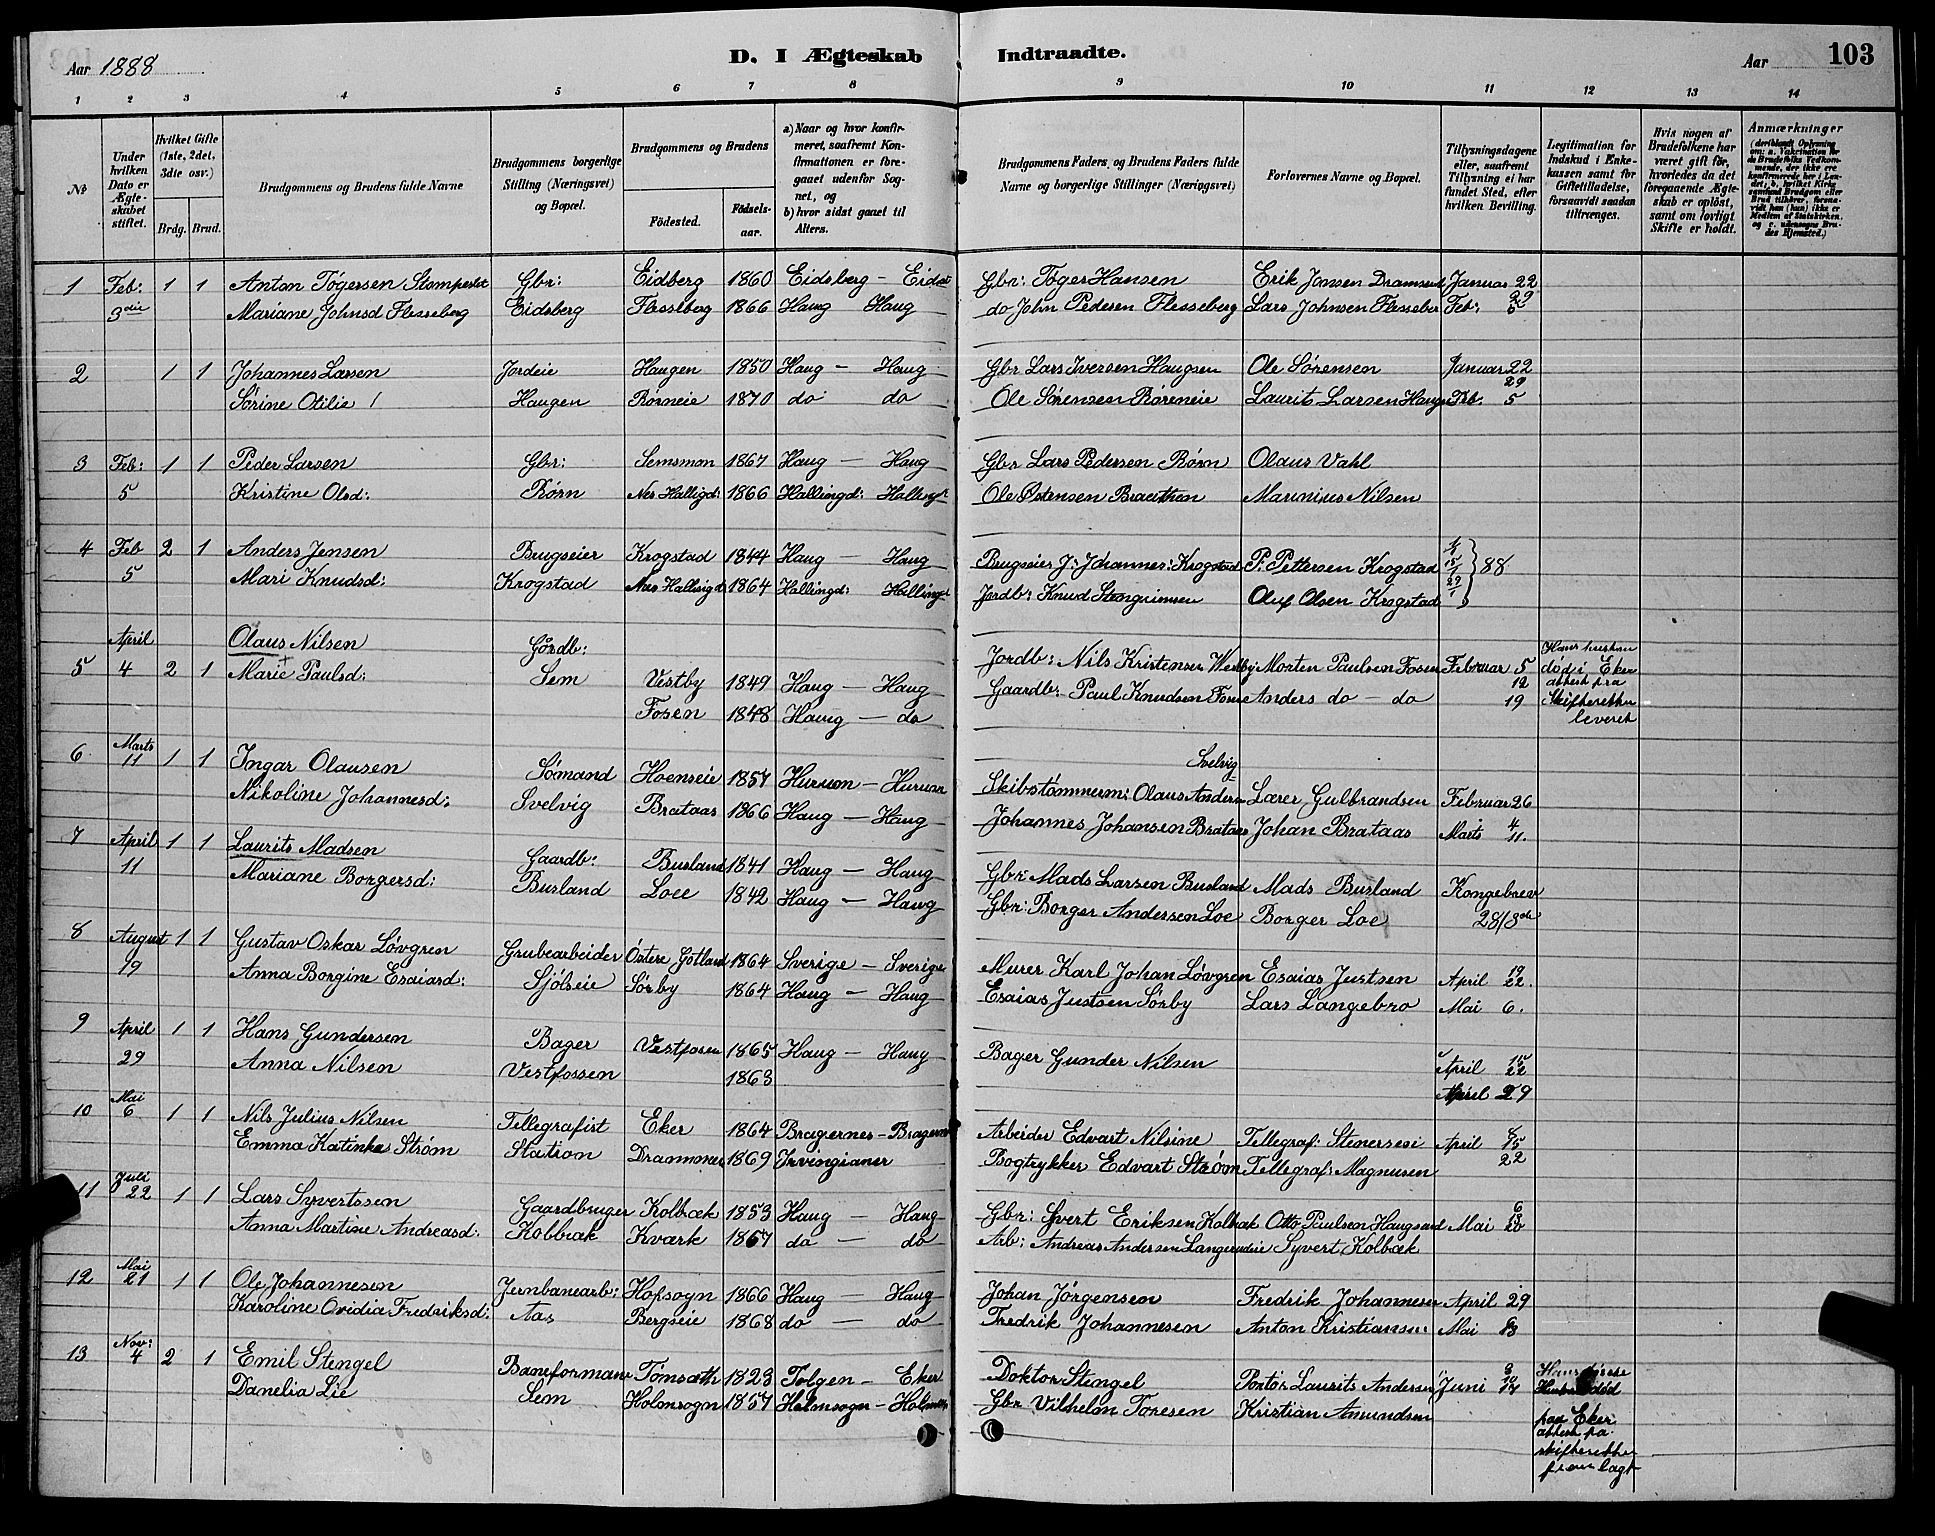 Aar 1888
D. I Ægteskab Indtraadte.
Aar
103
1 2 3 4 5 6 7 8 9 10 11 12 13 14
№
Under hvilken Dato er Ægteskabet stiftet.
Hvilket Gifte (1ste, 2det, 3die osv.)
Brdg. Brud.
Brudgommens og Brudens fulde Navne
Brudgommens borgerlige Stilling (Næringsvei) og Bopæl.
Brudgommens og Brudens
Fødested. Fødselsaar.
a) Naar og hvor konfirmeret, saafremt Konfirmationen er foregaaet udenfor Sognet, og
b) hvor sidst gaaet til Alters.
Brudgommens Faders, og Brudens Faders fulde Navne og borgerlige Stillinger (Næringsvei)
Forlovernes Navne og Bopæl.
Tillysningsdagene eller, saafremt Tillysning ei har fundet Sted, efter hvilken Bevilling.
Legitimation for Indskud i Enkekassen samt for Giftetilladelse, forsaavidt saadan tiltrænges.
Hvis nogen af Brudefolkene har været gift før, hvorledes da det foregaaende Ægteskab er opløst, samt om lovligt Skifte er holdt.
Anmærkninger
1 Feb: 1 1 Anton Tøgersen Gbr: Eidberg 1860 Eidsberg – Gbr: Tøger Hansen Erik Jonsen Januar 22
3die Mariane Johnsd Flesseberg Eidsberg Flesseberg 1866 Haug Haug do John Pedersen Flesseberg Lars Johnsen 29 Feb: 5
2 1 1 Johannes Larsen Jordeie Haugen 1850 Haug – Haug Gbr Lars Iversen Haugsen Ole Sørensen Januar 22
29
Sørine Otilie Haugen Rørneie 1870 do do Ole Sørensen Røreneie Laurits Larsen Feb. 5
3 Feb: 1 1 Peder Larsen Gbr: Semsmon 1867 Haug – Haug Gbr Lars Pedersen Rørn Olaus Vahl
5 Kristine Olsd: Rørn Nes Halligd: 1866 Hallingd: Ole Østensen Marinius Nilsen
4 Feb 2 1 Anders Jensen Brugseier Krogstad 1844 Haug – Haug Brugseier J: Johannes: Krogstad P: Pettersen Krogstad 88
5 Mari Knudsd: Krogstad Nes Hallingd 1864 Hallingd: Jordb: Knud Oluf Olsen Krogstad
April Olaus Nilsen Gårdb: Hans hustru
5 4 2 1 Marie Paulsd: Sem Vestby 1849 Haug – Haug Jordb: Nils Kristensen Morten Paulsen Fosen Februar 5 død i Eker
12 attest fra
Fosen 1848 Haug – do Gaardb: Paul Knudsen Anders do – do 19 Skifteretten
leveret
6 Marts 11 1 1 Ingar Olausen Sømand Hoenseie 1857 Hurum – Hurum Skibstømmerm: Olaus Svelvig Lærer Gulbrandsen Februar 26
Nikoline Johannesd: Svelvig Brataas 1866 Haug – Haug Johannes Johansen Brataas Johan Brataas Marts 4 11.
7 April 1 1 Laurits Madsen Gaardb: Busland 1841 Haug – Haug Gbr: Mads Larsen Busland Mads Busland Kongebrev
11 Mariane Borgersd: Busland Loee 1842 Haug – Haug Gbr: Borger Andersen Loe Borger Loe
8 August 1 1 Gustav Oskar Løvgren Grubearbeider Östere Götland 1864 Sverige – Sverige Murer Karl Johan Løvgren Esaias Justsen April 19 22.
19 Anna Borgine Esaiasd: Sjölseie Sörby 1864 Haug – Haug Esaias Justsen Sörby Lars Langebro Mai 6.
9 April 1 1 Hans Gundersen Bager Vestfosen 1865 Haug – Haug Bager Gunder Nilsen April 15 22
29 Anna Nilsen Vestfossen 1863 April 29
10 Mai 6 1 1 Nils Julius Nilsen Tellegrafist Eker 1864 Bragernes – Arbeider Edvart Tellegraf: Stenersen April 8 15
Emma Katinka Strøm Station 1869 Irvingianer Bogtrykker Edvart Strøm Tellegraf: Magnusen 22
11 Juli 22 1 1 Lars Syvertssen Gaardbruger Kolbæk 1853 Haug – Haug Gbr: Eriksen Kolbæk Otto Paulsen Mai 6 20
Anna Martine Andreasd: Kolbæk Kværk 1867 do – do Arb: Andreas Andersen Syvert Kolbæk
12 Mai 21 1 1 Ole Johannesen Jernbanearb: Hofsogn 1866 Haug – Haug Johan Jørgensen Fredrik Johannesen April 29
Karoline Ovidia Fredriksd: Aas Bergseie 1868 do – do Fredrik Johannesen Anton Kristiansen Mai
13 Nov: 4 2 1 Emil Stengel Baneformand 1823 Tolgen – Eker Doktor Stengel Laurits Andersen Juni
Danelia Lie Sem Holmsogn 1857 Holmsogn – Gbr Vilhelm Toresen Kristian Amundsen
paa Eker
attest fra
skifteretten
fremlagt